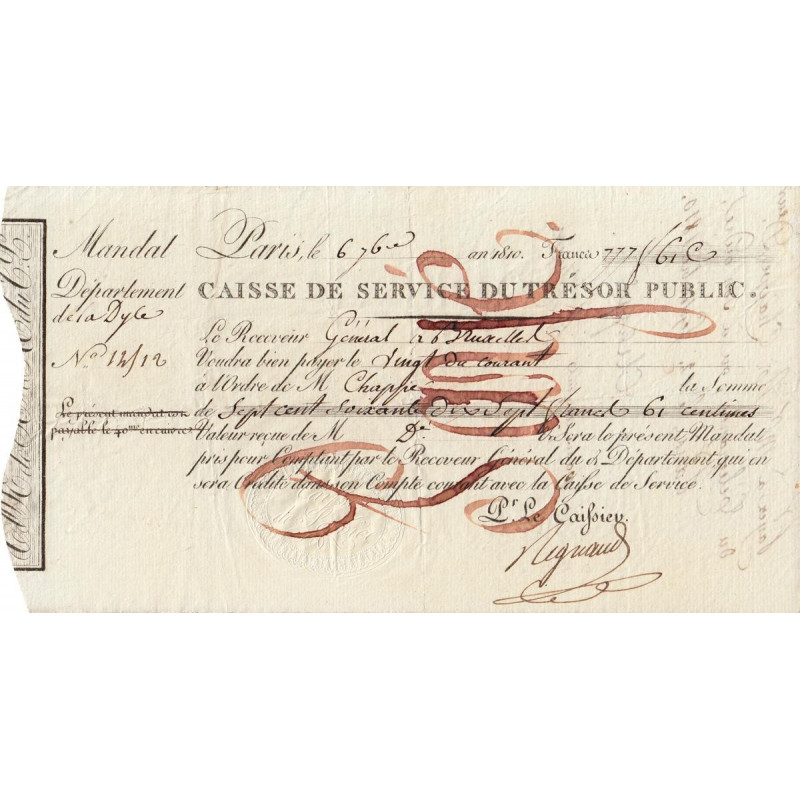 Mandal Paris, le 6 7bre an 1810. Francs 777 f 61 C
Département
de la Dyle
CAISSE DE SERVICE DU TRÉSOR PUBLIC.
Le Receveur Général à Bruxelles
No 12/12
Voudra bien payer le Vingt du courant
à l'Ordre de M Chappé la Somme
Le présent mandat non
payable le 40me en cuivre
de Sept cent Soixante dix Sept francs 61 centimes
Valeur reçue de M Do Sera le présent Mandat
pris pour Comptant par le Receveur Général du dt Département qui en
sera Crédité dans son Compte courant avec la Caisse de Service.
Pr Le Caissier.
Regnaud